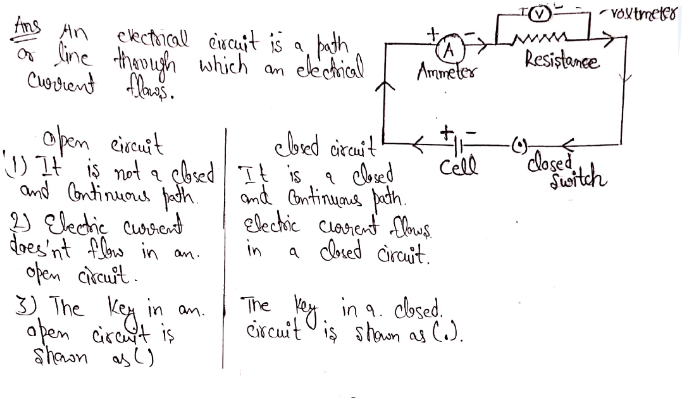 Ans An electrical circuit is a path
or line through which an electrical
current flows.
+ -
A
Ammeter
+ -
V
- voltmeter
Resistance
+ -
Cell
(•)
closed
switch
open circuit
1) It is not a closed
and Continuous path.
2) Electric current
does'nt flow in an.
open circuit.
3) The Key in an.
open circuit is
shown as ()
closed circuit
It is a closed
and Continuous path.
Electric current flows
in a closed circuit.
The key in a. closed.
circuit is shown as (.).